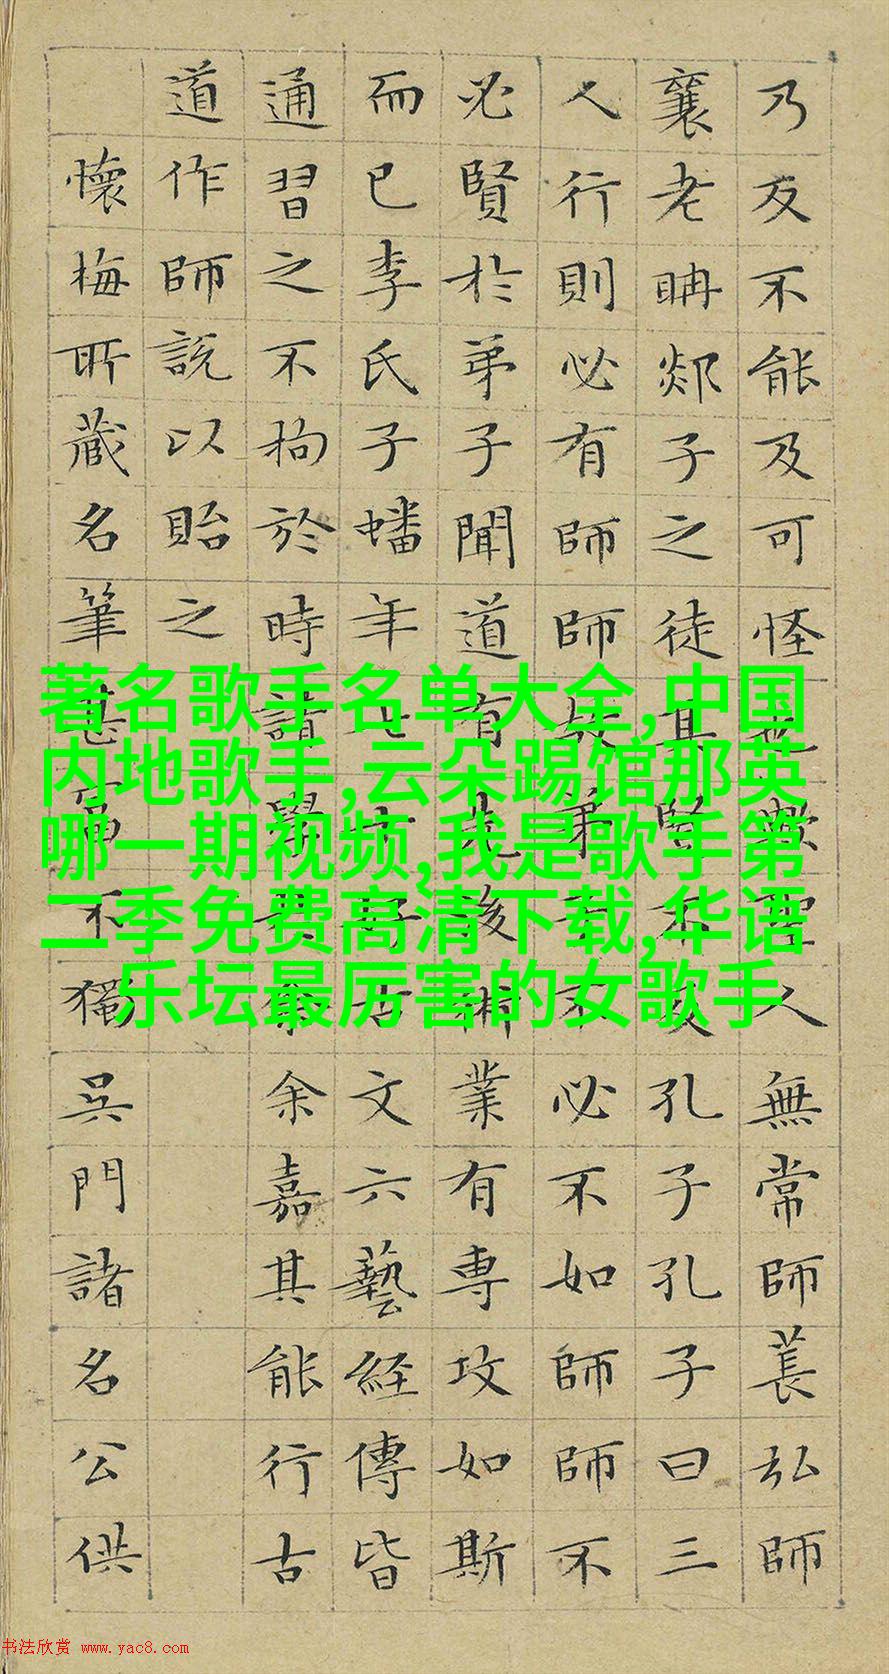 乃反不能及可怪也歟聖人無常師萇弘師
襄老聃郯子之徒其賢不及孔子孔子曰三
人行則必有師師故弟子不必不如師師不
必賢於弟子聞道有先後術業有專攻如斯
而已李氏子蟠年好古文六藝經傳皆
通習之不拘於時請學於余余嘉其能行古
道作師說以貽之
懷梅所藏名筆甚富不獨吳門諸名公供
著名歌手名单大全,中国
内地歌手,云朵踢馆那英
哪一期视频,我是歌手第
二季免费高清下载,华语
乐坛最厉害的女歌手
书法欣赏 www.yac8.com